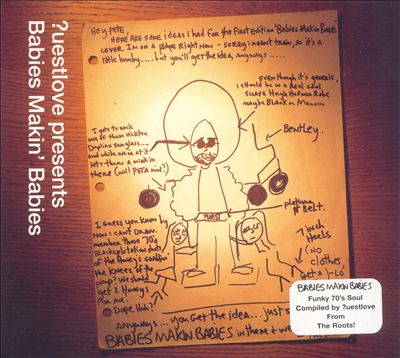 ?uestlove presents
Babies Makin' Babies
Hey Pete,
Here are some ideas I had for the first edition "Babies Makin Babies"
cover. I'm on a plane right now - sorry I meant train, so it's a
little bumby.... but you'll get the idea, anyways.....
Even though it's generic,
I should be in a real cool
suave Hugh Hefner Robe
maybe Black or Maroon
I gots to rock
one of them Vickter
Dogbine sunglass...
and while we're at it
lets throw a mink in
there (will PETA mind?)
Bentley.
platinum
? Belt.
I guess you know by
now I can't draw.
member those 70's
Blacksploitation shots
of the Honeys Grabbin
the knees of the
pimp? We should
get 2 Honeys
for me!
Dope, Huh?
7 inch
Heels
(No
clothes,
get a J-Lo
Anyways... you get the idea... just s
BABIES MAKIN BABIES in there +
BABIES MAKIN BABIES
Funky 70's Soul
Compiled by ?uestlove
From
The Roots!